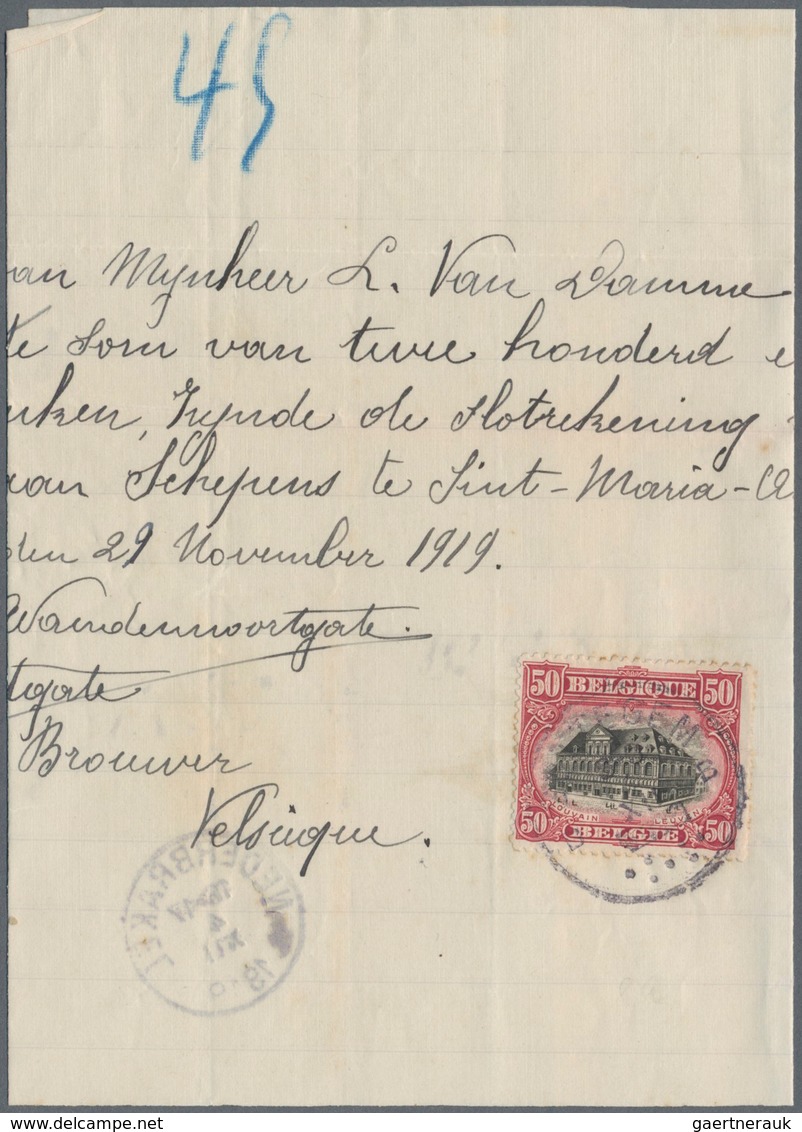 45
an Mynheer L. Van Damme
de som van twee honderd e
nken, Zynde de Slotrekening
van Schepens te Sint-Maria-A
den 29 November 1919.
Vandennoortgate.
tgate
Brouwer
Velsique.
50 BELGIQUE 50
LOUVAIN LEUVEN
50 BELGIE 50
NEDERBRAKEL
gaertnerauk